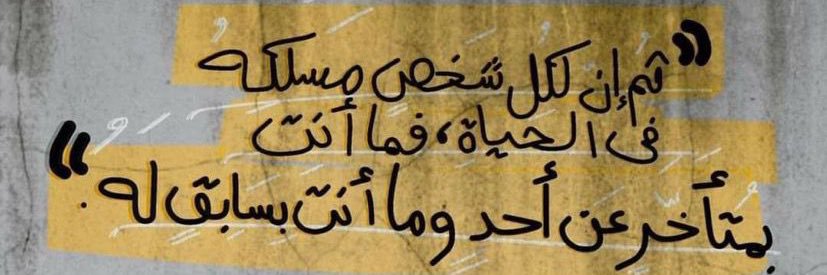 ”ثم إن لكل شخص مسلكه
في الحياة، فما أنت
بمتأخر عن أحد وما أنت بسابق له.“